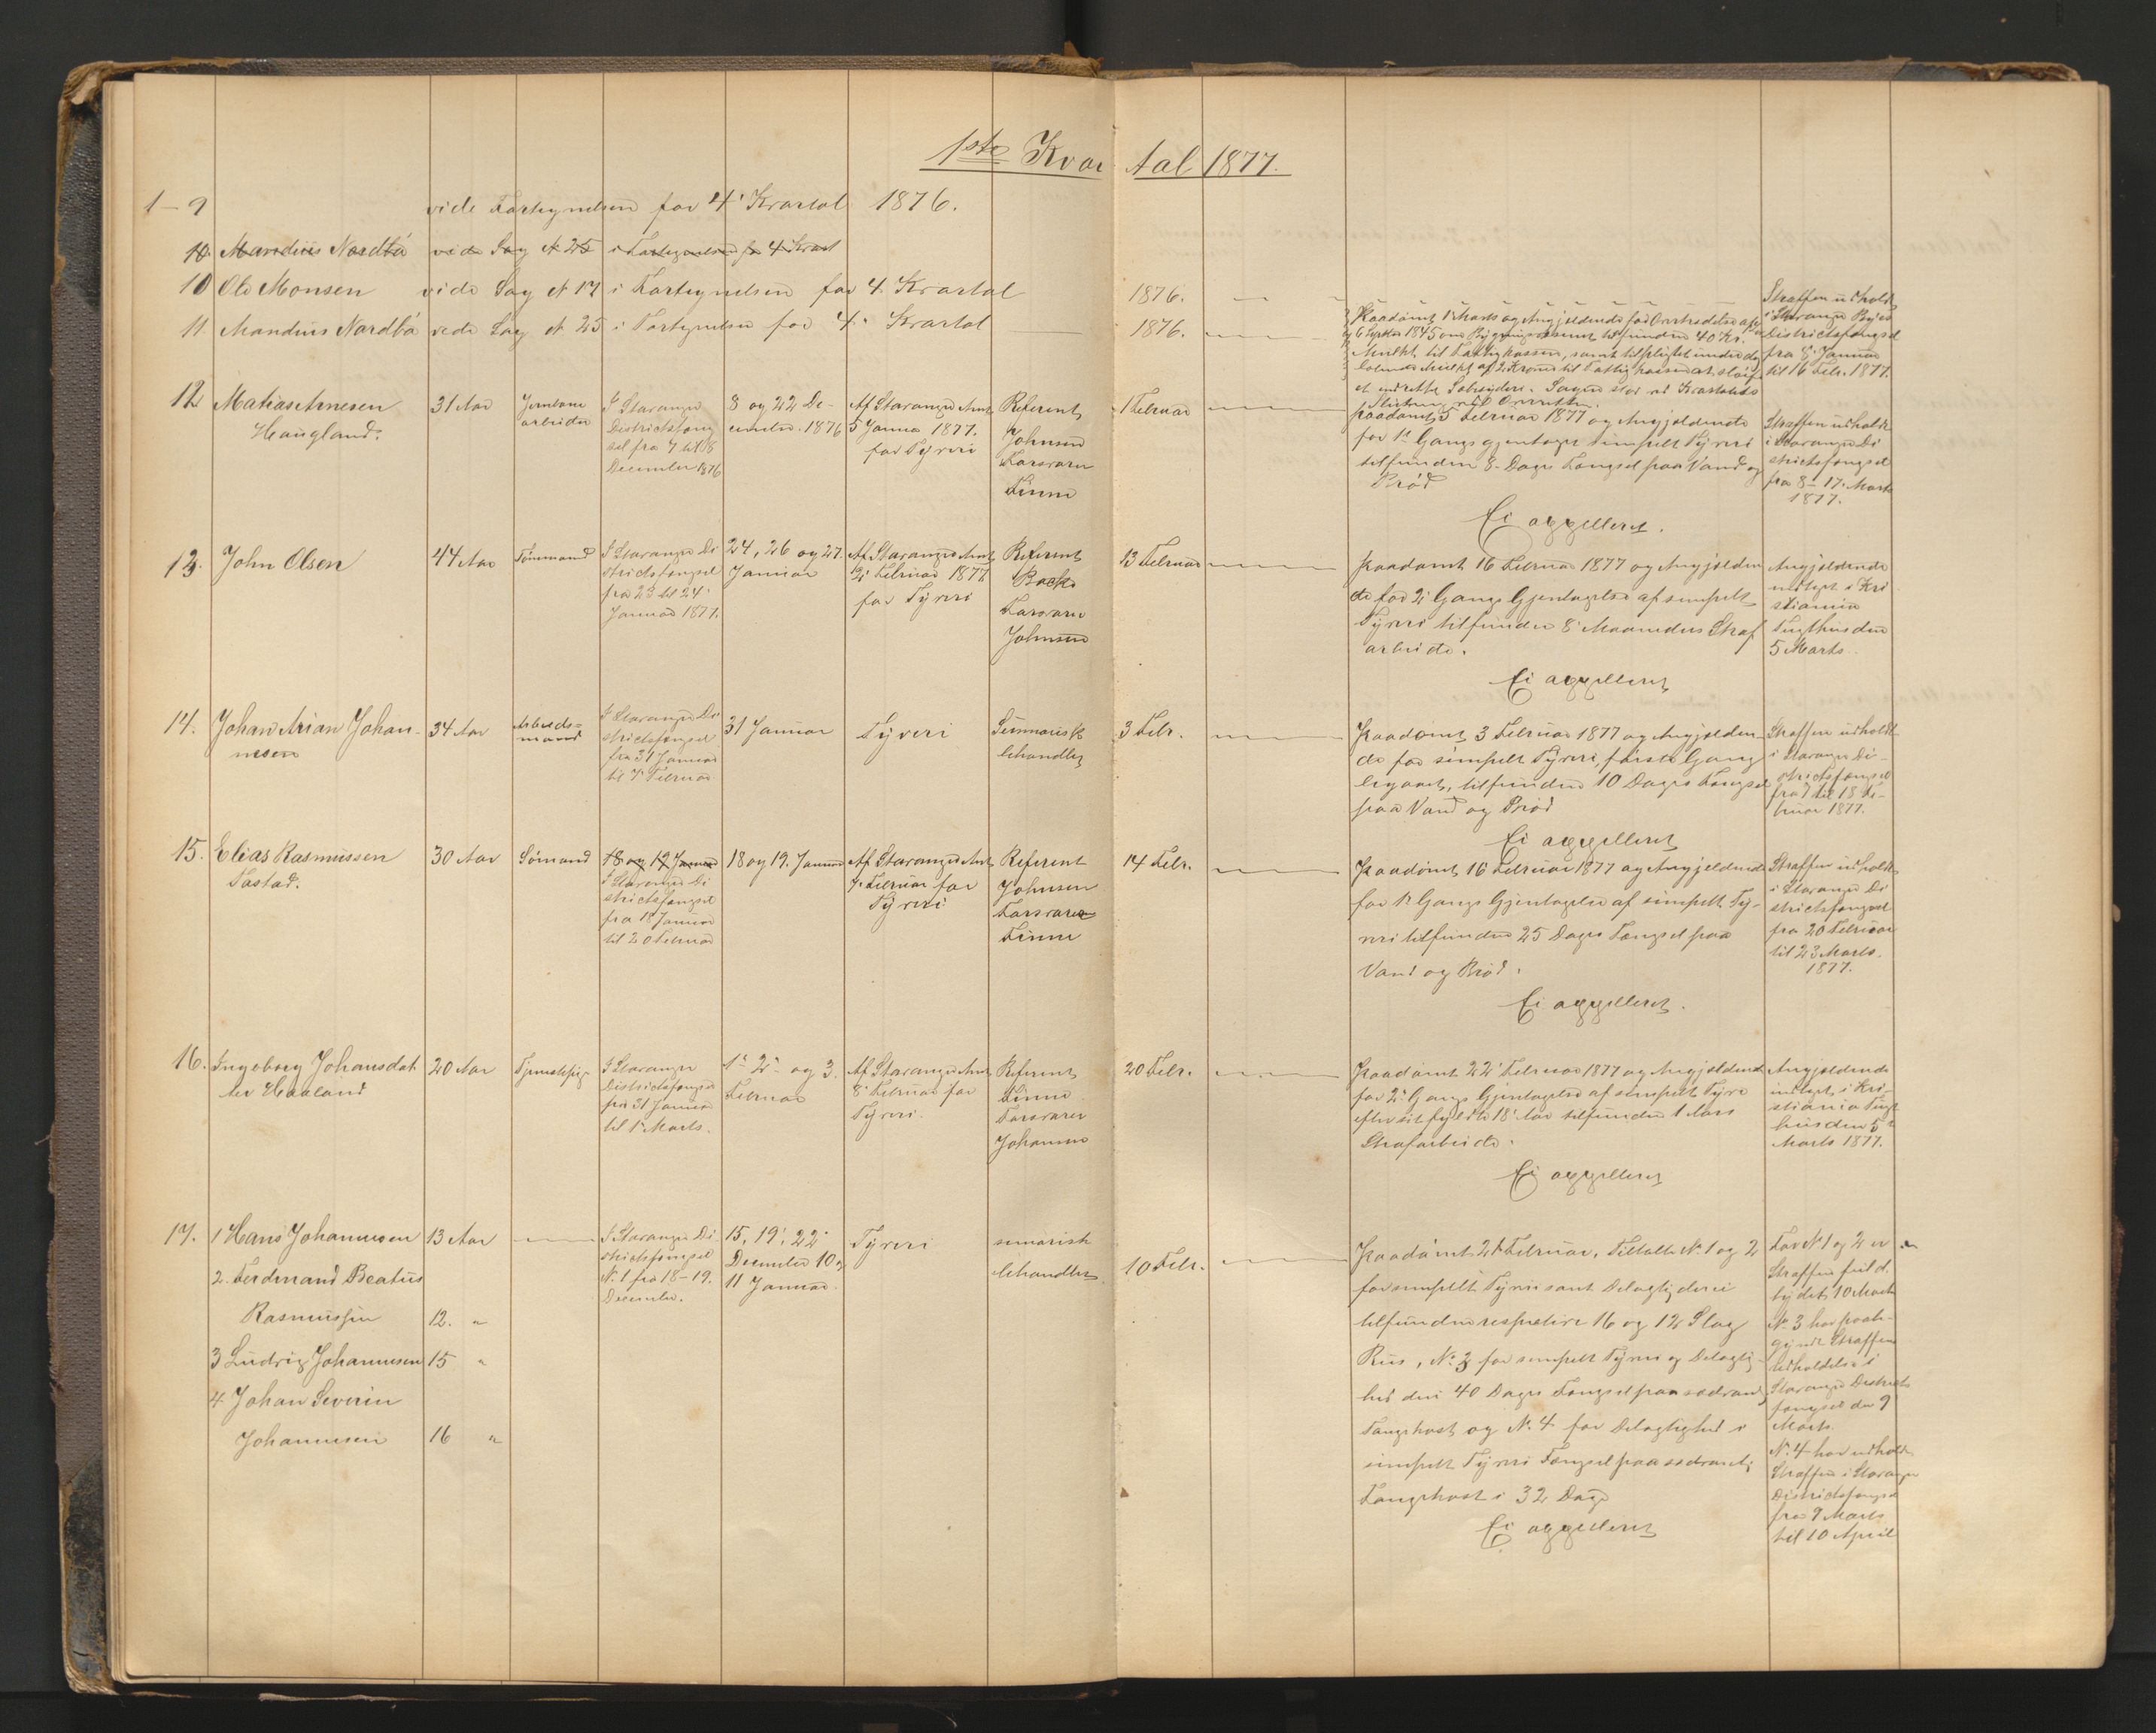 1ste Kvartal 1877.
1-9 vide Fortegnelsen for 4' Kvartal 1876.
10. Mandius Nordbö vide Sag N 25 i Fortegnelsen for 4 Kvart
10 Ole Monsen vide Sag N 17 i Fortegnelsen for 4. Kvartal 1876.
11. Mandius Nordbö vide Sag N 25 i Fortegnelsen for 4. Kvartal 1876.
Paadömt 1 Marts og Angjeldende for Overtrædelse af
6 Septbr 1845 om Bygningsvæsenet tilfunden 40 Kr.
Mulkt til Fattigkassen, samt tilpligtet under
Mulkt af 2 Kroner til Fattigkassen at
Straffen udholdt
i Stavanger Byes
Districtsfængsel
fra 8 Januar
til 16 Febr. 1877.
12 Matias Arnesen
Haugland.
31 Aar
Jernbane
arbeider
I Stavanger
Districtsfæng
sel fra 7 til 8
December 1876
8 og 22 De-
cember. 1876
Af Stavanger Amt
5 Janua 1877.
for Tyveri
Referent
Johnsen
Forsvarer
Finne
1 Februar
paadömt 5 Februar 1877 og Angjeldende
for 1' Gangs gjentaget simpelt Tyveri
tilfunden 8 Dages Fængsel paa Vand og
Bröd
Ei appelleret.
Straffen udholdt
i Stavanger Di
strictsfængsel
fra 8-17. Marts
1877.
13. John Olsen
44 Aar
Tömmand
I Stavanger Di
strictsfængsel
fra 23 til 24'
Januar 1877.
24, 26 og 27.
Januar
Af Stavanger Amt
2' Februar 1877
for Tyveri
Referent
Backe
Forsvarer
Johnsen
13 Februar
paadömt 16 Februar 1877 og Angjelden
de for 2' Gangs Gjentagelse af simpelt
Tyveri tilfunden 8' Maaneders Straf
arbeide.
Ei appelleret
Angjeldende
indlagt i Kri
stiania
Tugthus den
5 Marts.
14. Johan Arian Johan-
nesen
34 Aar
Arbeids=
mand
I Stavanger Di
strictsfængsel
fra 31 Januar
til 7' Februar
31 Januar
Tyveri
Summarisk
behandlet
3 Febr.
Paadömt 3 Februar 1877 og Angjelden-
de for simpelt Tyveri, förste Gang
begaaet, tilfunden 10 Dages Fængsel
paa Vand og Bröd
Ei appelleret
Straffen udholdt
i Stavanger Di-
strictsfængsel
fra 7 til 18 Fe-
bruar 1877.
15. Elias Rasmussen
Tastad.
30 Aar
Sömand
18 og 19 Januar
I Stavanger Di
strictsfængsel
fra 18 Januar
til 20 Februar
18 og 19. Januar
Af Stavanger Amt
7. Februar for
Tyveri
Referent
Johnsen
Forsvarer
Finne
14 Febr.
Paadömt 16 Februar 1877 og Angjeldende
for 1' Gangs Gjentagelse af simpelt Ty-
veri tilfunden 25 Dages Fængsel paa
Vand og Bröd.
Ei appelleret.
Straffen udholdt
i Stavanger Di
strictsfængsel
fra 20 Februar
til 23 Marts.
1877.
16. Ingeborg Johansdat
ter Haaland
20 Aar
Tjenestepige
I Stavanger
Districtsfængsel
fra 31 Januar
til 1' Marts.
1' 2' og 3.
Februar
Af Stavanger Amt
8' Februar for
Tyveri.
Referent
Finne
Forsvarer
Johansen
20 Febr.
Paadömt 22' Februar 1877 og Angjeldende
for 2' Gangs Gjentagelse af simpelt Tyve
efter sit fyldte 18' Aar tilfunden 1 Aars
Strafarbeide.
Ei appelleret
Angjeldende
indlagt i Kri-
stiania Tugt
hus den 5'
Marts 1877.
17. 1 Hans Johannesen
13 Aar
2. Ferdinand Beatus
Rasmussen
12. "
3 Ludvig Johannesen
15 "
4 Johan Severin
Johannesen
16 "
I Stavanger Di
strictsfængsel
N. 1 fra 18-19.
December.
15, 19', 22'
December 10 og
11 Januar
Tyveri
sumarisk
behandlet
10 Febr.
Paadömt 21 Februar. Tiltalte N. 1 og 2
for simpelt Tyveri samt Delagtighed i
tilfunden respective 16 og 12 Slag
Riis, N. 3 for simpelt Tyveri og Delagtig-
hed deri 40 Dages Fængsel paa sædvanlig
Fangekost og N. 4 for Delagtighed i
simpelt Tyveri Fængsel paa sædvanlig
Fangekost i 32 Dage
Ei appelleret
For N. 1 og 2 er
Straffen fuld
byrdet 10 Marts
N. 3 har paabe-
gyndt Straffens
Udholdelse i
Stavanger Districts
fængsel den 9
Marts.
N. 4 har udholdt
Straffen i Stavanger
Districtsfængsel
fra 9 Marts
til 10 April